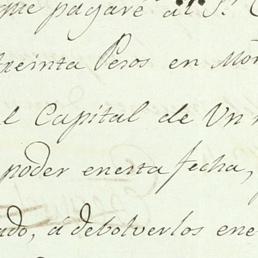 que pagaré al S.r
treinta Pesos en Mon
l Capital de Un
poder enesta fecha,
ado, á debolverlos ene